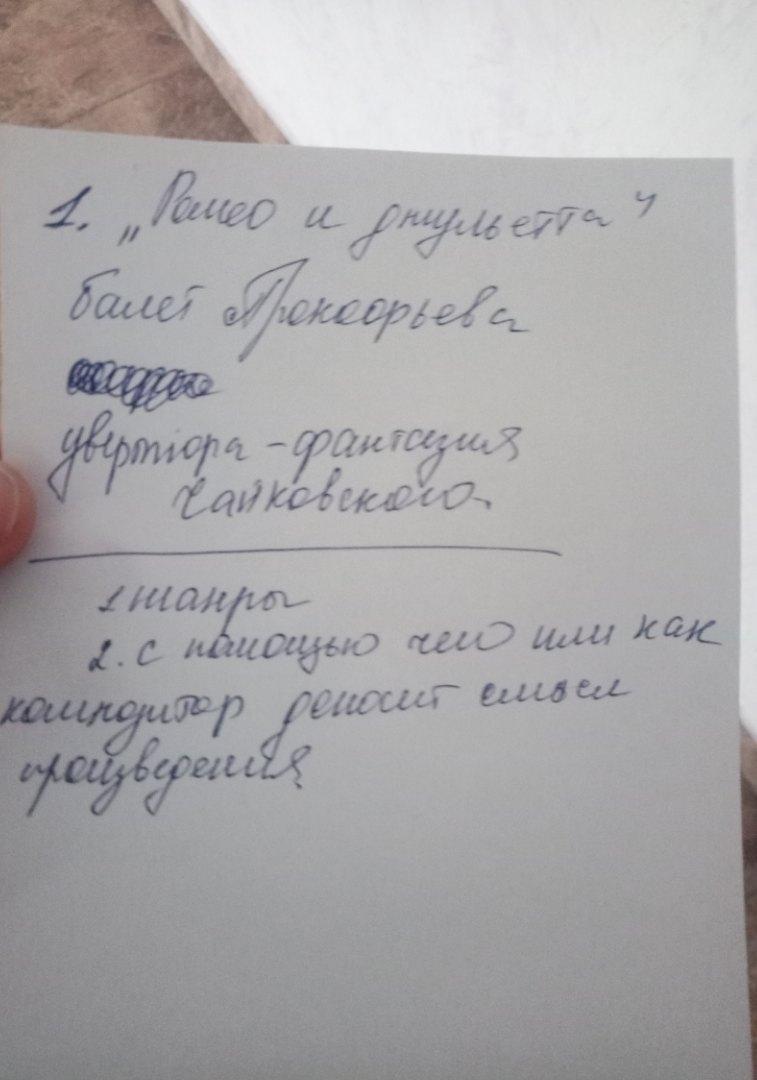 1. „Ромео и джульетта"
балет Прокофьева
увертюра-фантазия
Чайковского.
1 жанры
2. с помощью чего или как
композитор доносит смысл
произведения